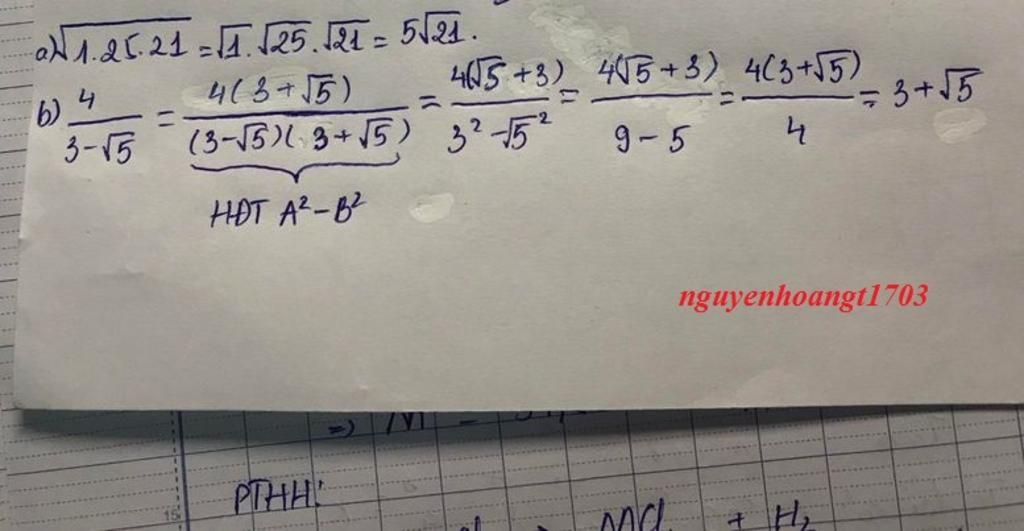 a) √1.25.21 = √1.√25.√21 = 5√21.
b) 4/(3-√5) = 4(3+√5)/((3-√5)(3+√5)) = 4(√5+3)/(3²-√5²) = 4(√5+3)/(9-5) = 4(3+√5)/4 = 3+√5
HĐT A²-B²
nguyenhoangt1703
=)
PTHH:
+ H₂
15